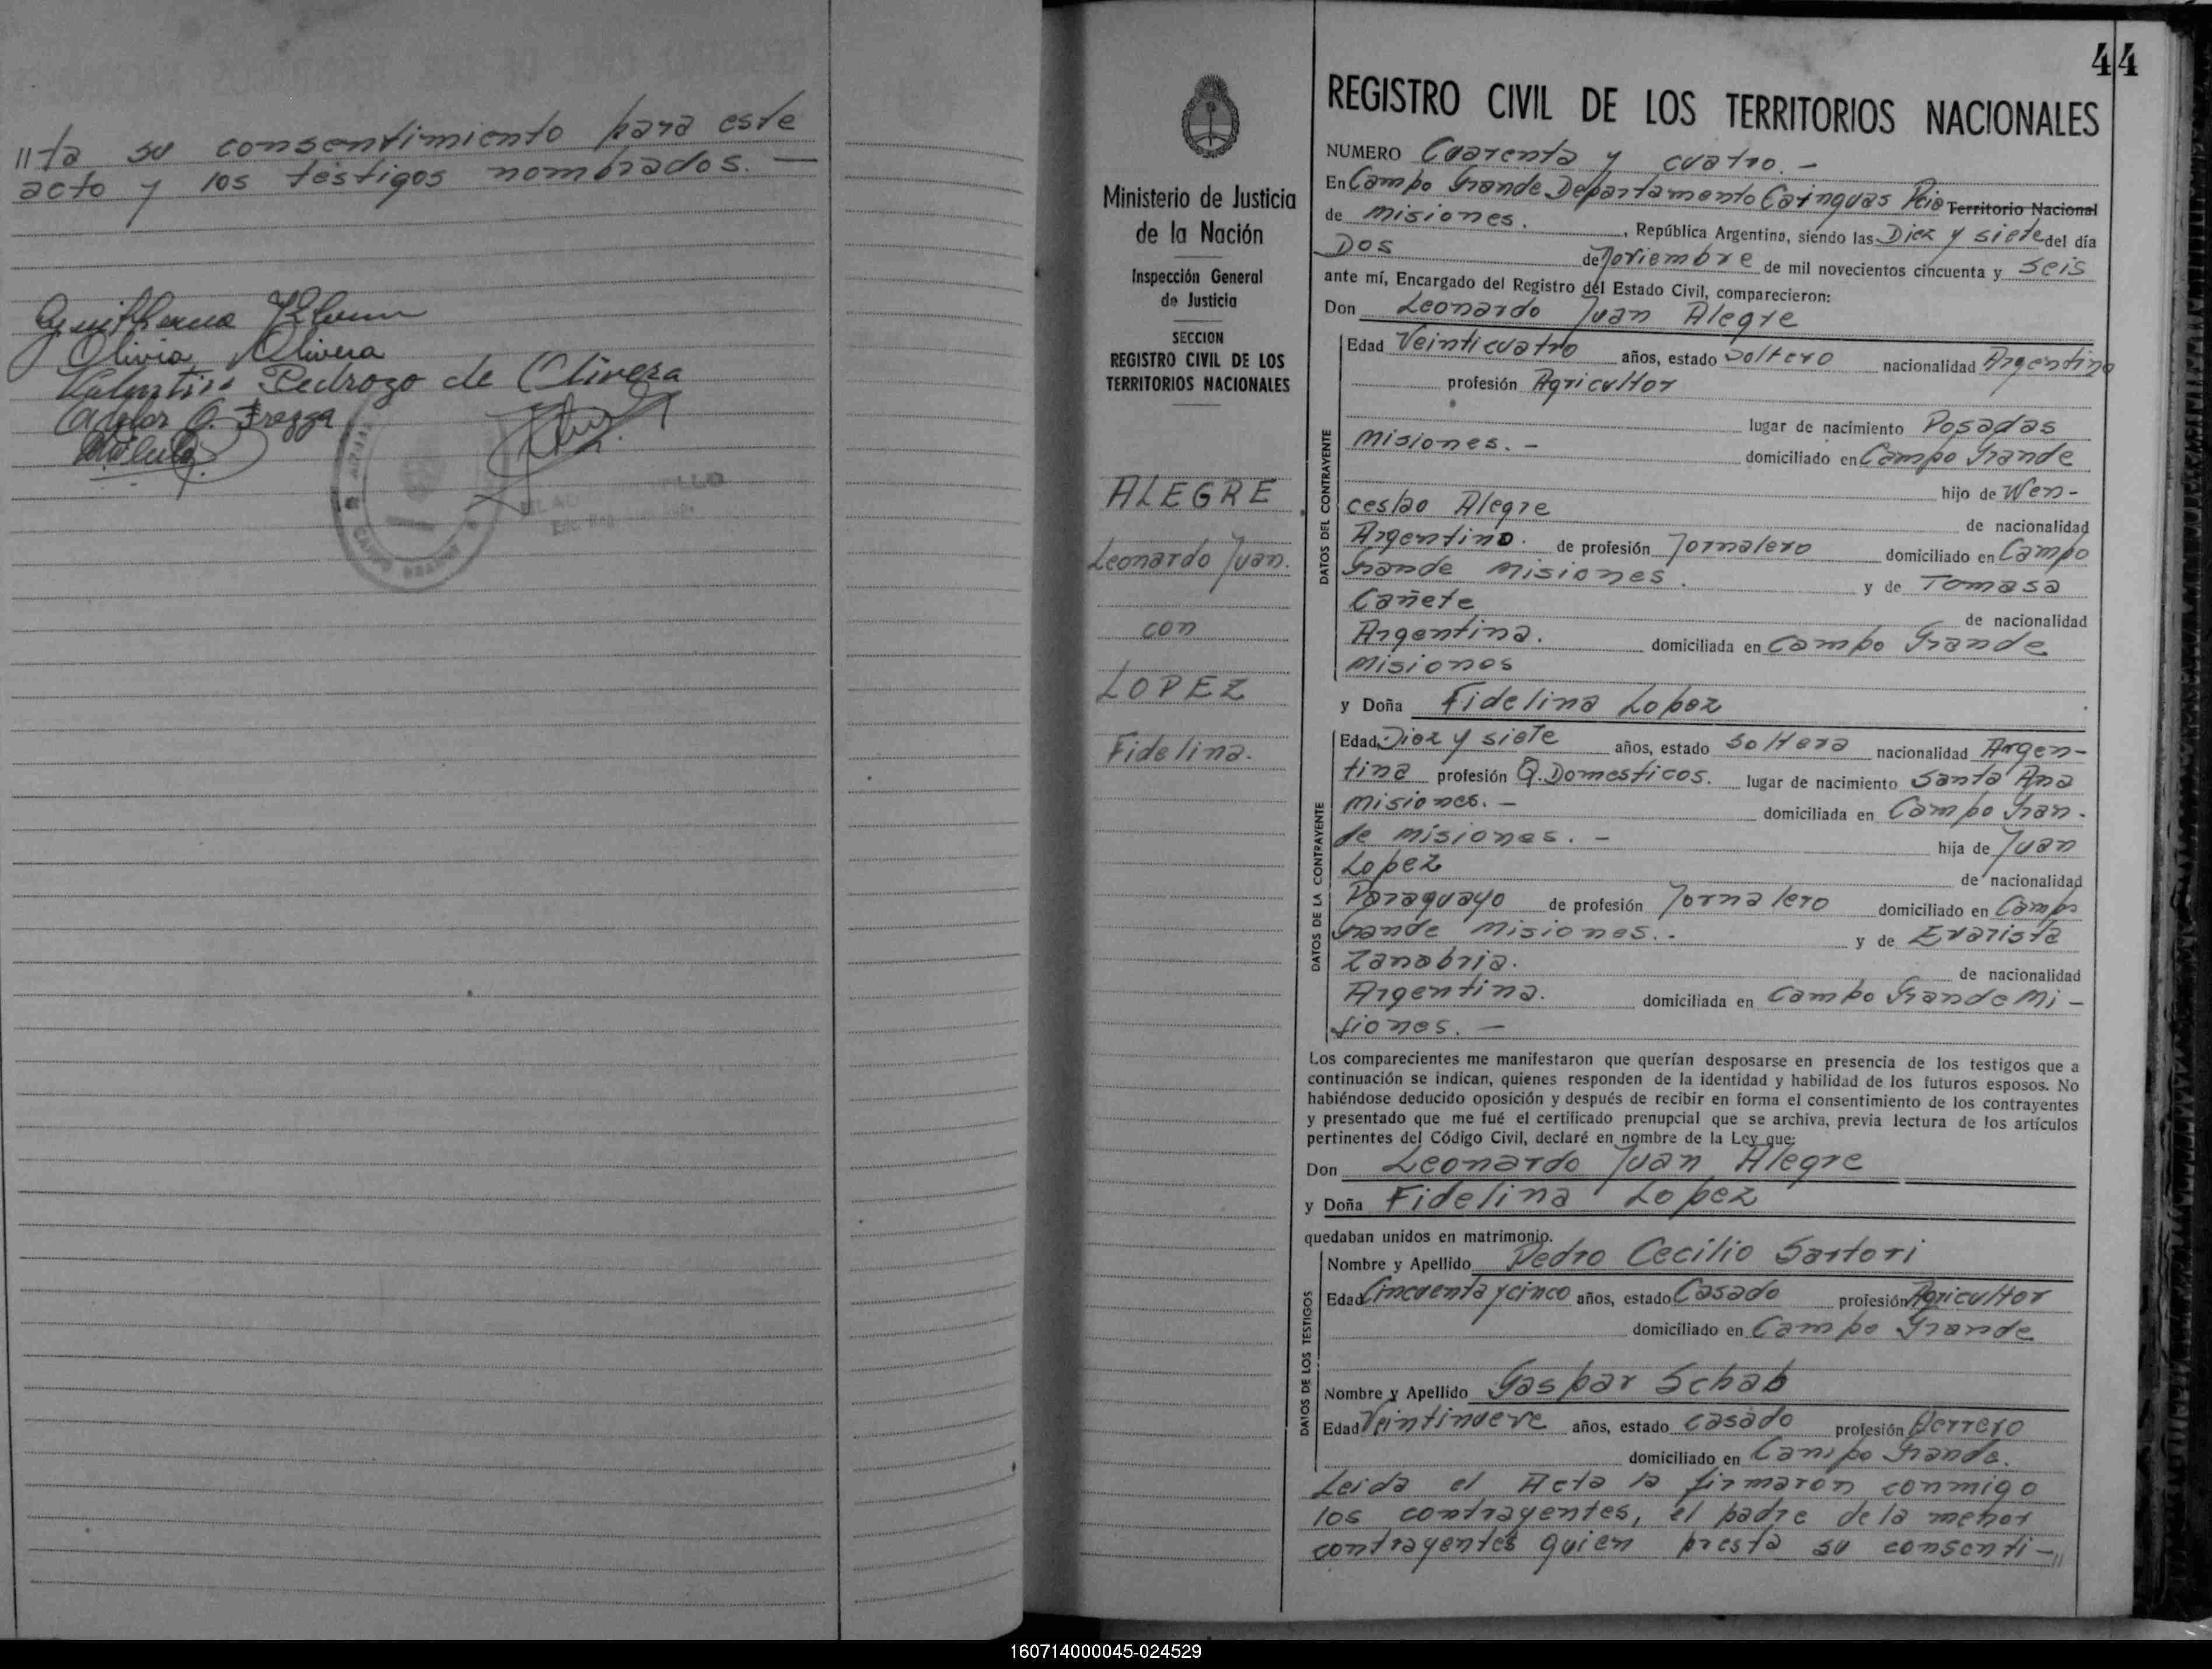 //ta su consentimiento para este
acto y los testigos nombrados. —
Olivia Olivera
Pedrozo de Olivera
44
Ministerio de Justicia
de la Nación
Inspección General
de Justicia
SECCION
REGISTRO CIVIL DE LOS
TERRITORIOS NACIONALES
ALEGRE
Leonardo Juan.
con
LOPEZ
Fidelina.
REGISTRO CIVIL DE LOS TERRITORIOS NACIONALES
NUMERO Cuarenta y cuatro. -
En Campo Grande Departamento Cainguas Pcia Territorio Nacional
de Misiones. , República Argentina, siendo las Diez y siete del día
Dos de Noviembre de mil novecientos cincuenta y seis
ante mí, Encargado del Registro del Estado Civil, comparecieron:
Don Leonardo Juan Alegre
DATOS DEL CONTRAYENTE
Edad Veinticuatro años, estado Soltero nacionalidad Argentino
profesión Agricultor
lugar de nacimiento Posadas
Misiones. - domiciliado en Campo Grande
hijo de Wen-
ceslao Alegre de nacionalidad
Argentino. de profesión Jornalero domiciliado en Campo
Grande Misiones. y de Tomasa
Cañete de nacionalidad
Argentina. domiciliada en Campo Grande
Misiones
y Doña Fidelina Lopez
DATOS DE LA CONTRAYENTE
Edad Diez y siete años, estado Soltera nacionalidad Argen-
tina profesión Q. Domesticos. lugar de nacimiento Santa Ana
Misiones. - domiciliada en Campo Gran-
de Misiones. - hija de Juan
Lopez de nacionalidad
Paraguayo de profesión Jornalero domiciliado en Campo
Grande Misiones. - y de Evarista
Zanabria. de nacionalidad
Argentina. domiciliada en Campo Grande Mi-
siones. —
Los comparecientes me manifestaron que querían desposarse en presencia de los testigos que a
continuación se indican, quienes responden de la identidad y habilidad de los futuros esposos. No
habiéndose deducido oposición y después de recibir en forma el consentimiento de los contrayentes
y presentado que me fué el certificado prenupcial que se archiva, previa lectura de los artículos
pertinentes del Código Civil, declaré en nombre de la Ley que:
Don Leonardo Juan Alegre
y Doña Fidelina Lopez
quedaban unidos en matrimonio.
DATOS DE LOS TESTIGOS
Nombre y Apellido Pedro Cecilio Sartori
Edad Cincuenta y cinco años, estado Casado profesión Agricultor
domiciliado en Campo Grande
Nombre y Apellido Gaspar Schab
Edad Veintinueve años, estado Casado profesión Herrero
domiciliado en Campo Grande.
Leida el Acta la firmaron conmigo
los contrayentes, el padre de la menor
contrayentes quien presta su consenti-//
160714000045-024529